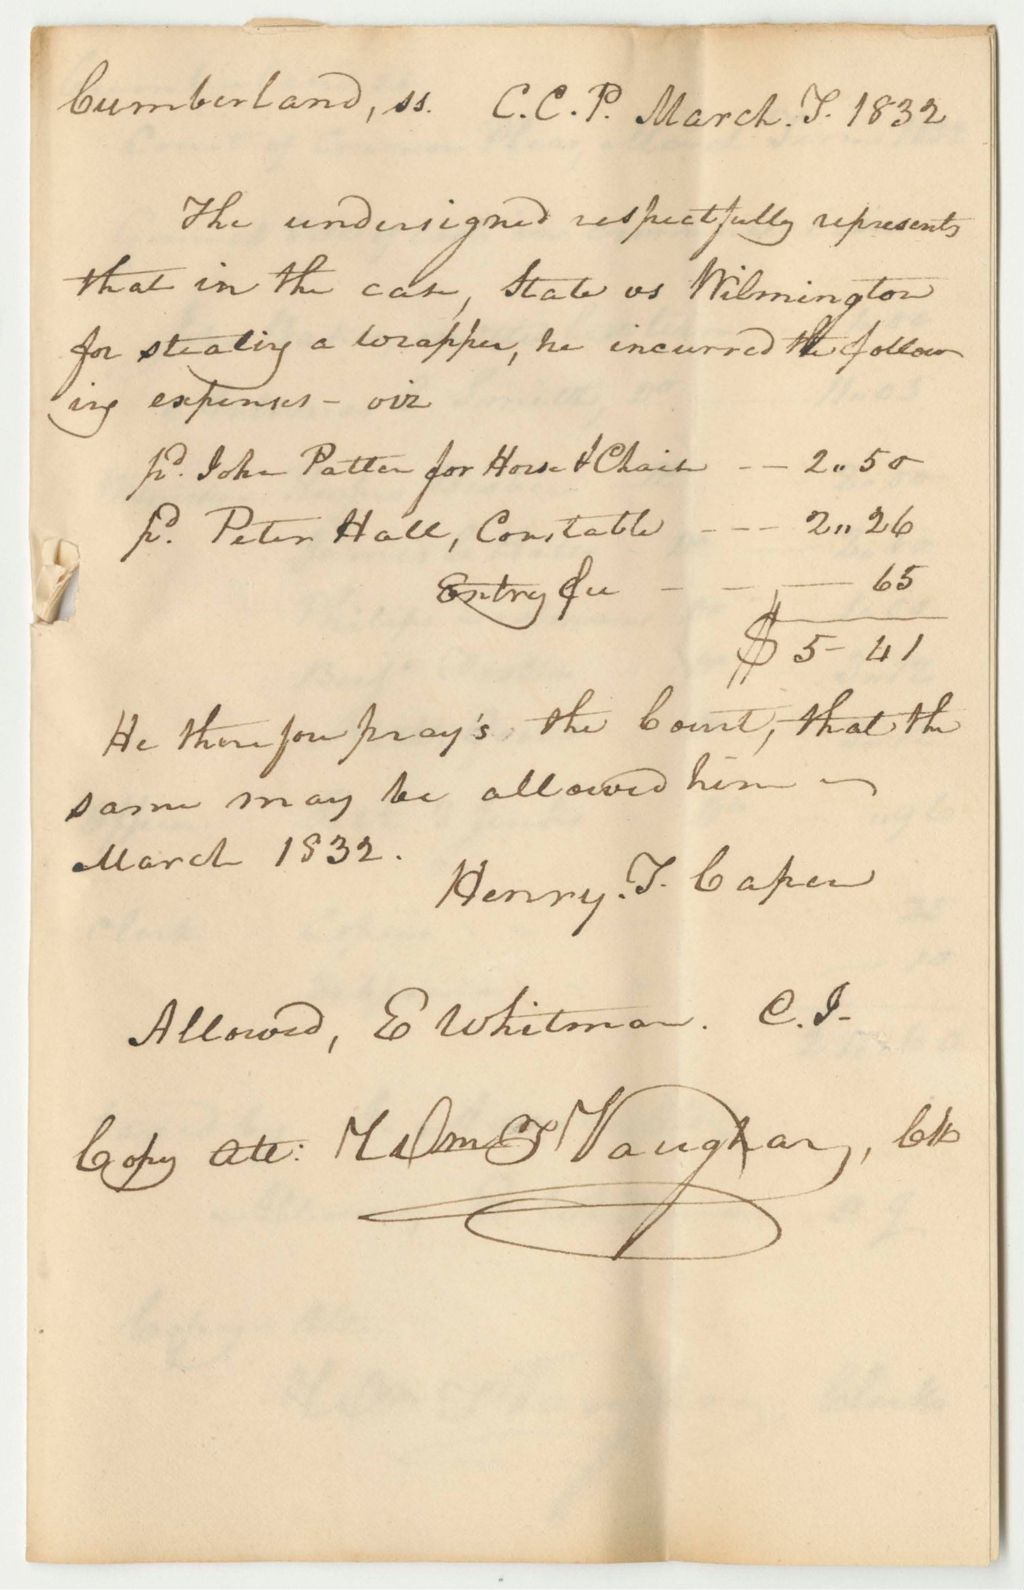 Cumberland, ss. C.C.P. March. T. 1832
The undersigned respectfully represents
that in the case, State vs Wilmington
for stealing a wrapper, he incurred the follow
ing expenses - viz
pd. John Patten for Horse & Chaise -- 2.. 50
pd. Peter Hall, Constable --- 2.. 26
Entry fee - - - 65
$ 5 - 41
He therefore pray's the Court, that the
same may be allowed him -
March 1832.
Henry. T. Capen
Allowed, E Whitman. C.J.
Copy Att: Wm T Vaughan, Clk